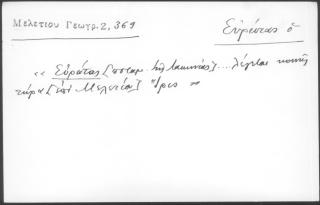 Μελετίου Γεωγρ. 2, 369
Εὐρώτας ὁ
« Εὐρώτας [ποταμ. τῆς Λακωνίας] .... λέγεται κοινῶς
τώρα [ἐπὶ Μελετίου] Ἴρις »